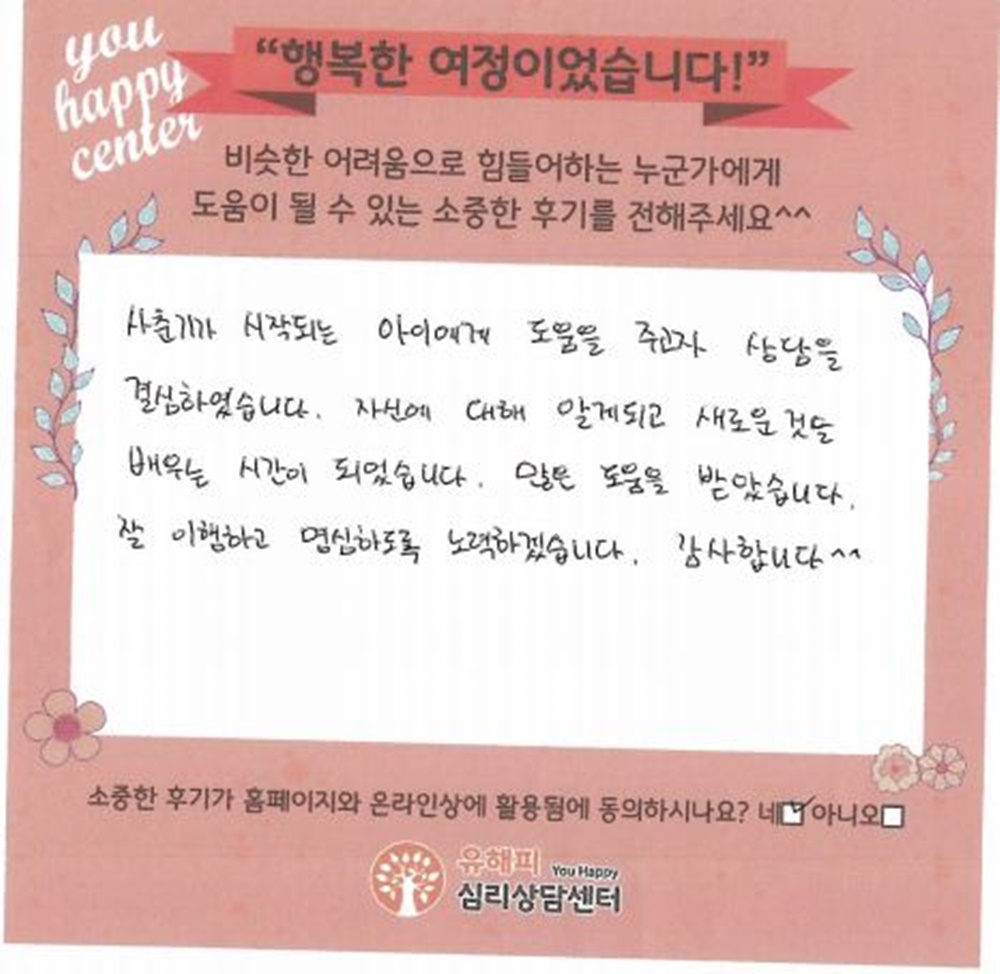 you
happy
center
“행복한 여정이었습니다!”
비슷한 어려움으로 힘들어하는 누군가에게
도움이 될 수 있는 소중한 후기를 전해주세요^^
사춘기가 시작되는 아이에게 도움을 주고자 상담을
결심하였습니다. 자신에 대해 알게되고 새로운것들
배우는 시간이 되었습니다. 많은 도움을 받았습니다.
잘 이행하고 명심하도록 노력하겠습니다. 감사합니다^^
소중한 후기가 홈페이지와 온라인상에 활용됨에 동의하시나요? 네☑아니오☐
유해피 You Happy
심리상담센터